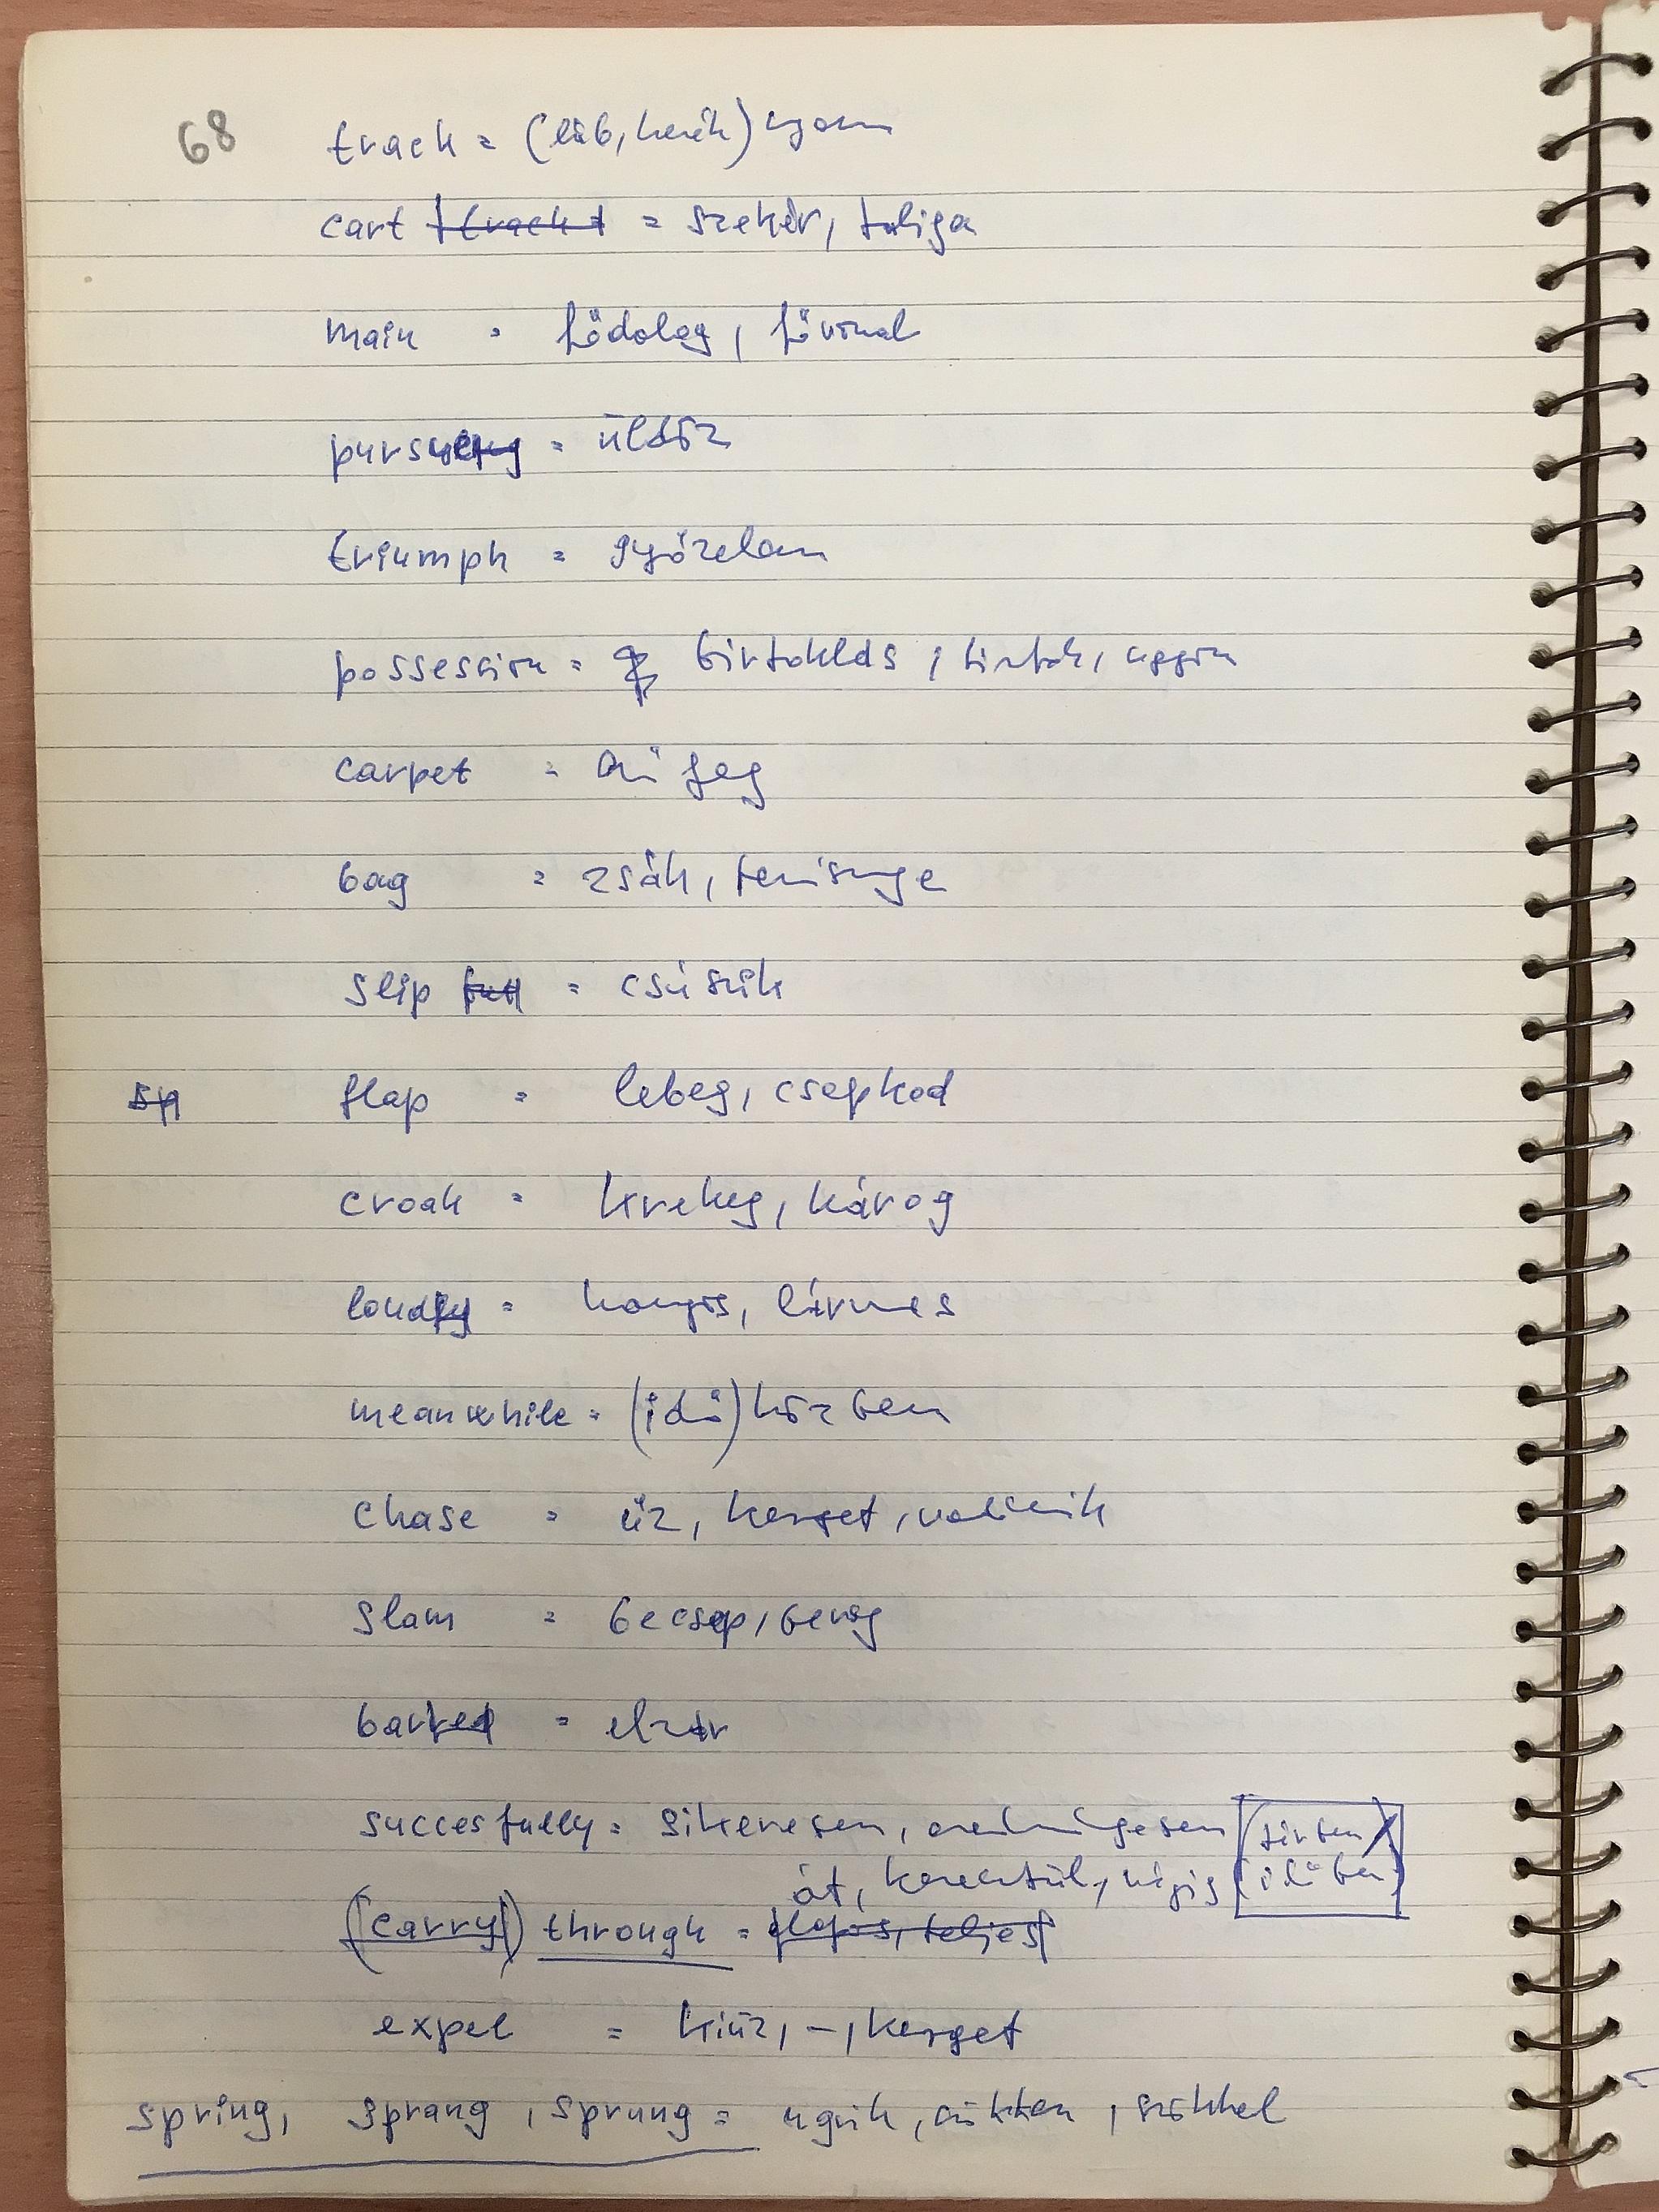 68 track = (láb, kerék) nyom
cart track = szekér, taliga
main = fődolog, fővonal
pursueing = üldöz
triumph = győzelem
possession = birtoklás, birtok, vagyon
carpet = szőnyeg
bag = zsák,
slip full = csúszik
sp flap = lebeg, csapkod
croak = krekeg, károg
loudly = hangos, lármás
meanwhile = (idő) közben
chase = űz, kerget, vadászik
slam = becsap, bevág
barred = elzár
succesfully = sikeresen, eredményesen (térben)
át, keresztül, végig (időben)
(carry) through = alapos, teljes
expel = kiűz, -, kerget
spring, sprang, sprung = ugrik, szökken, szökkel